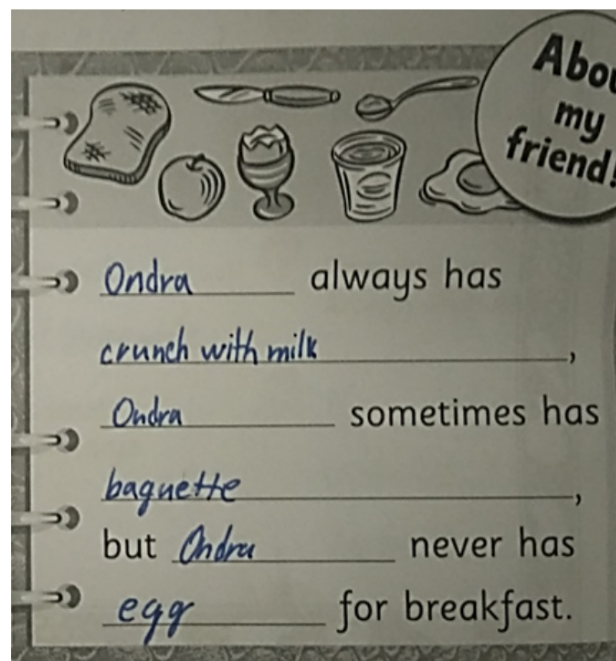 Abou
my
friend!
Ondra always has
crunch with milk,
Ondra sometimes has
baguette,
but Ondra never has
egg for breakfast.